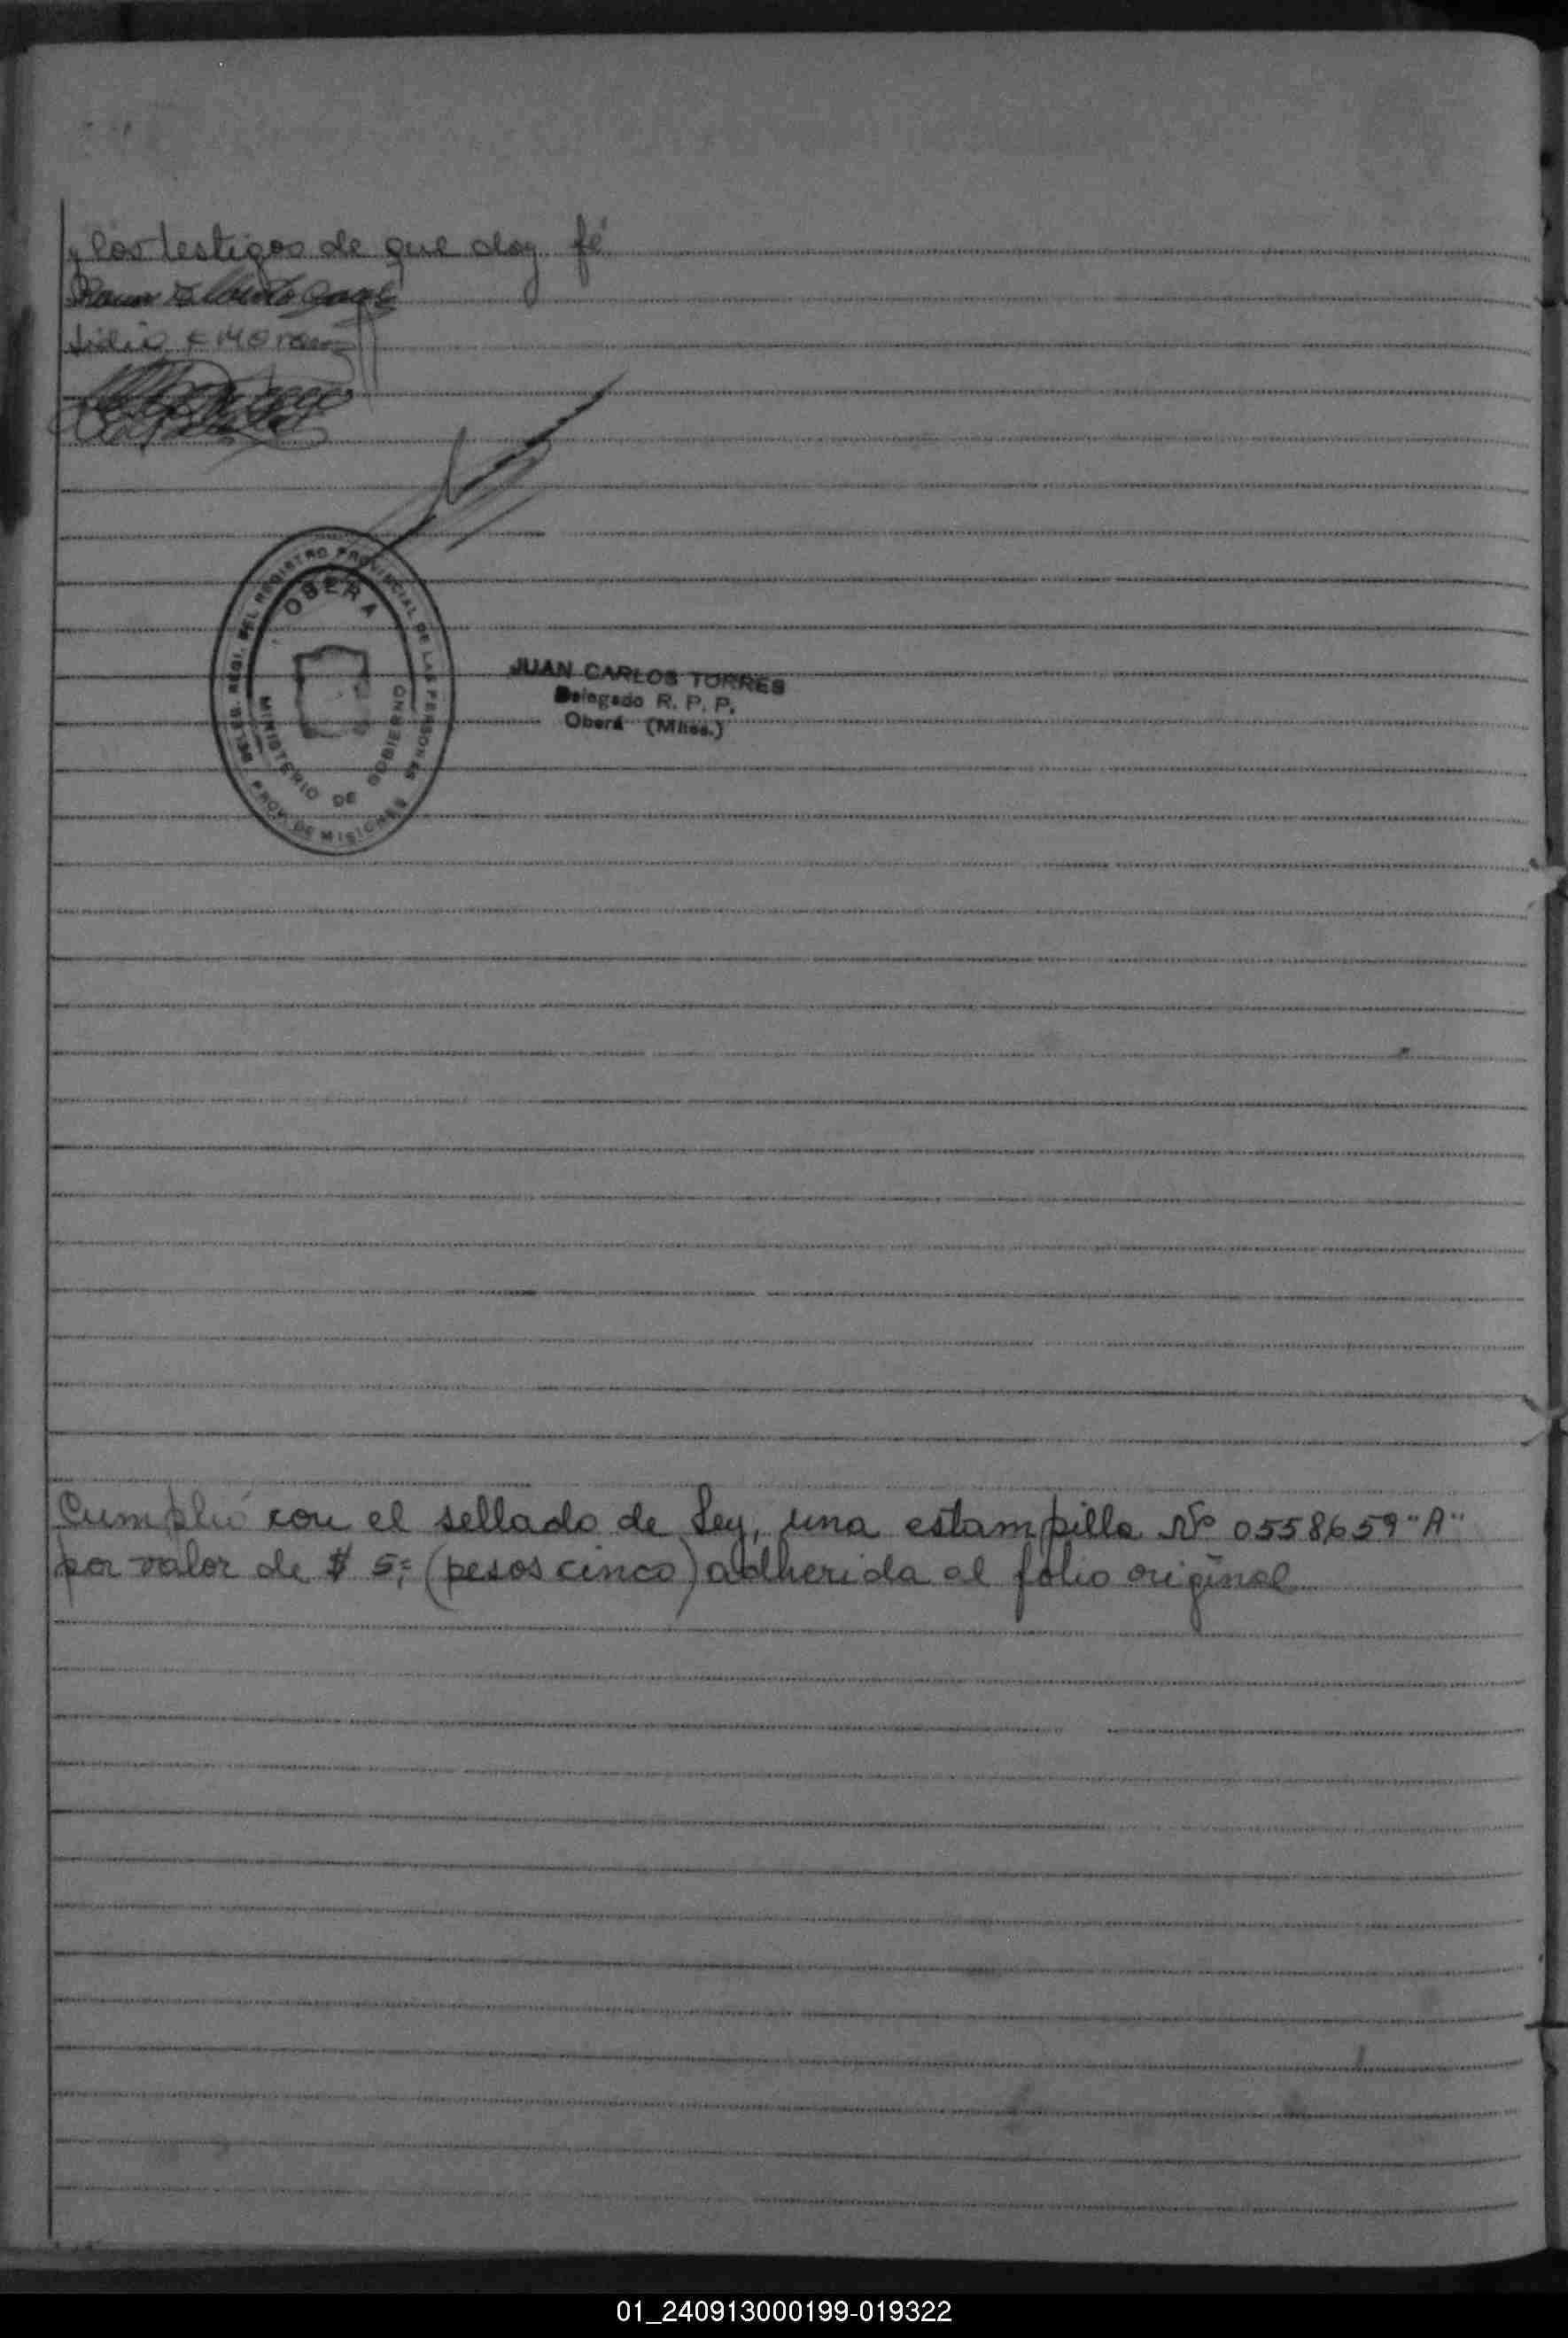 y los testigos de que doy fé
Lidia E Moran
DELEG. REGI. DEL REGISTRO PROVINCIAL DE LAS PERSONAS
OBERA
MINISTERIO DE GOBIERNO
PROV. DE MISIONES
JUAN CARLOS TORRES
Delegado R. P. P.
Oberá (Mnes.)
Cumplió con el sellado de Ley, una estampilla Nº 0558659 "A"
por valor de $ 5,= (pesos cinco) adherida al folio original
01_240913000199-019322